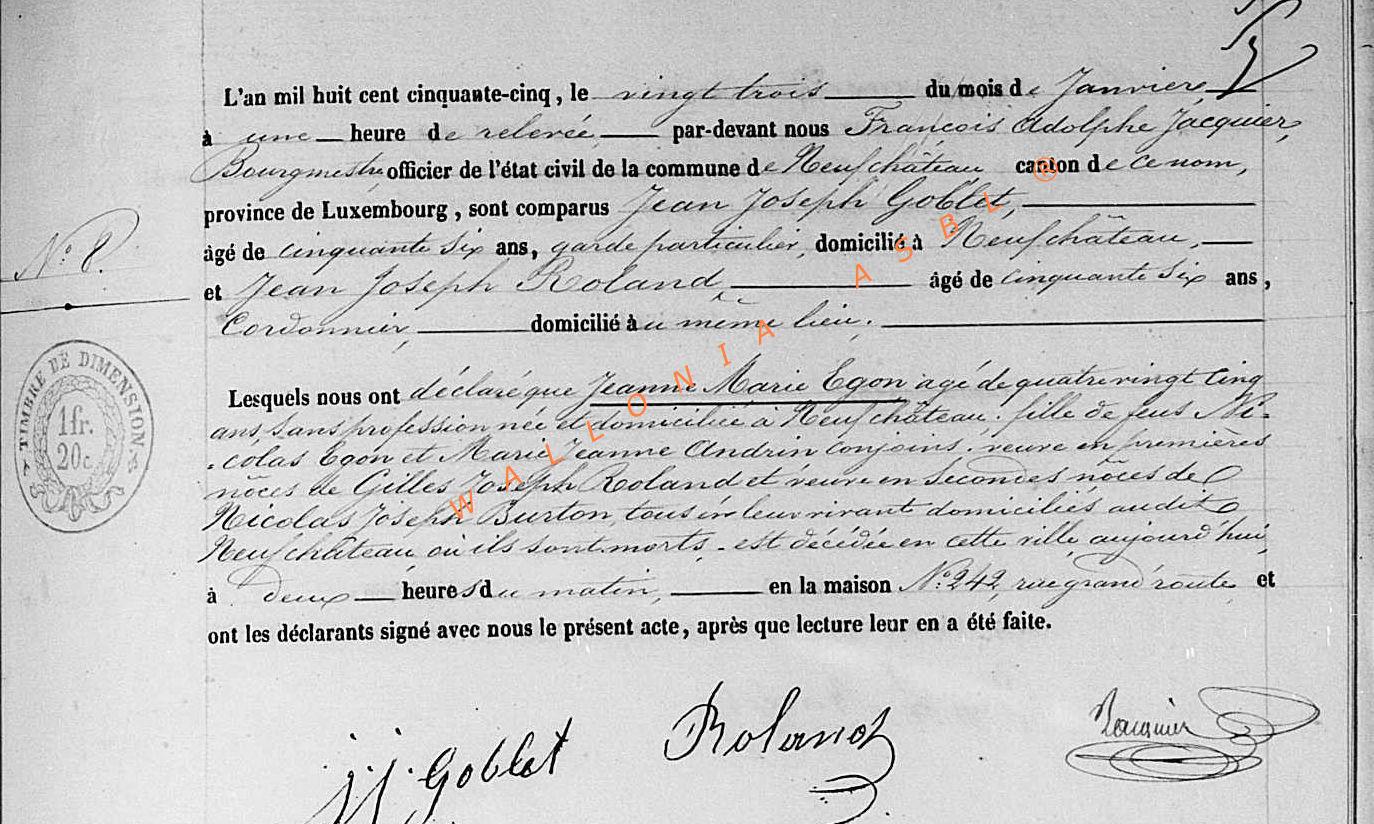 L'an mil huit cent cinquante-cinq, le vingt trois du mois de Janvier
à une heure de relevée, par-devant nous François Adolphe Jacquier,
Bourgmestre officier de l'état civil de la commune de Neufchâteau canton de ce nom,
province de Luxembourg, sont comparus Jean Joseph Goblet,
âgé de cinquante six ans, garde particulier, domicilié à Neufchâteau,
N° 8.
et Jean Joseph Roland, âgé de cinquante six ans,
Cordonnier, domicilié au même lieu.
Lesquels nous ont déclaré que Jeanne Marie Egon agé de quatre vingt cinq
ans, sans profession née et domiciliée à Neufchâteau. fille de feus Ni-
colas Egon et Marie Jeanne Andrin conjoins. veuve en premières
nôces de Gilles Joseph Roland et veuve en Secondes nôces de
Nicolas Joseph Burton, tous en leur vivant domiciliés audit
Neufchâteau où ils sont morts. est décédée en cette ville aujourd'hui,
à deux heures du matin, en la maison N° 242, rue grand'route, et
ont les déclarants signé avec nous le présent acte, après que lecture leur en a été faite.
TIMBRE DE DIMENSION
1fr.
20c.
WALLONIA ASBL ®
jj Goblet
Roland
Jacquier